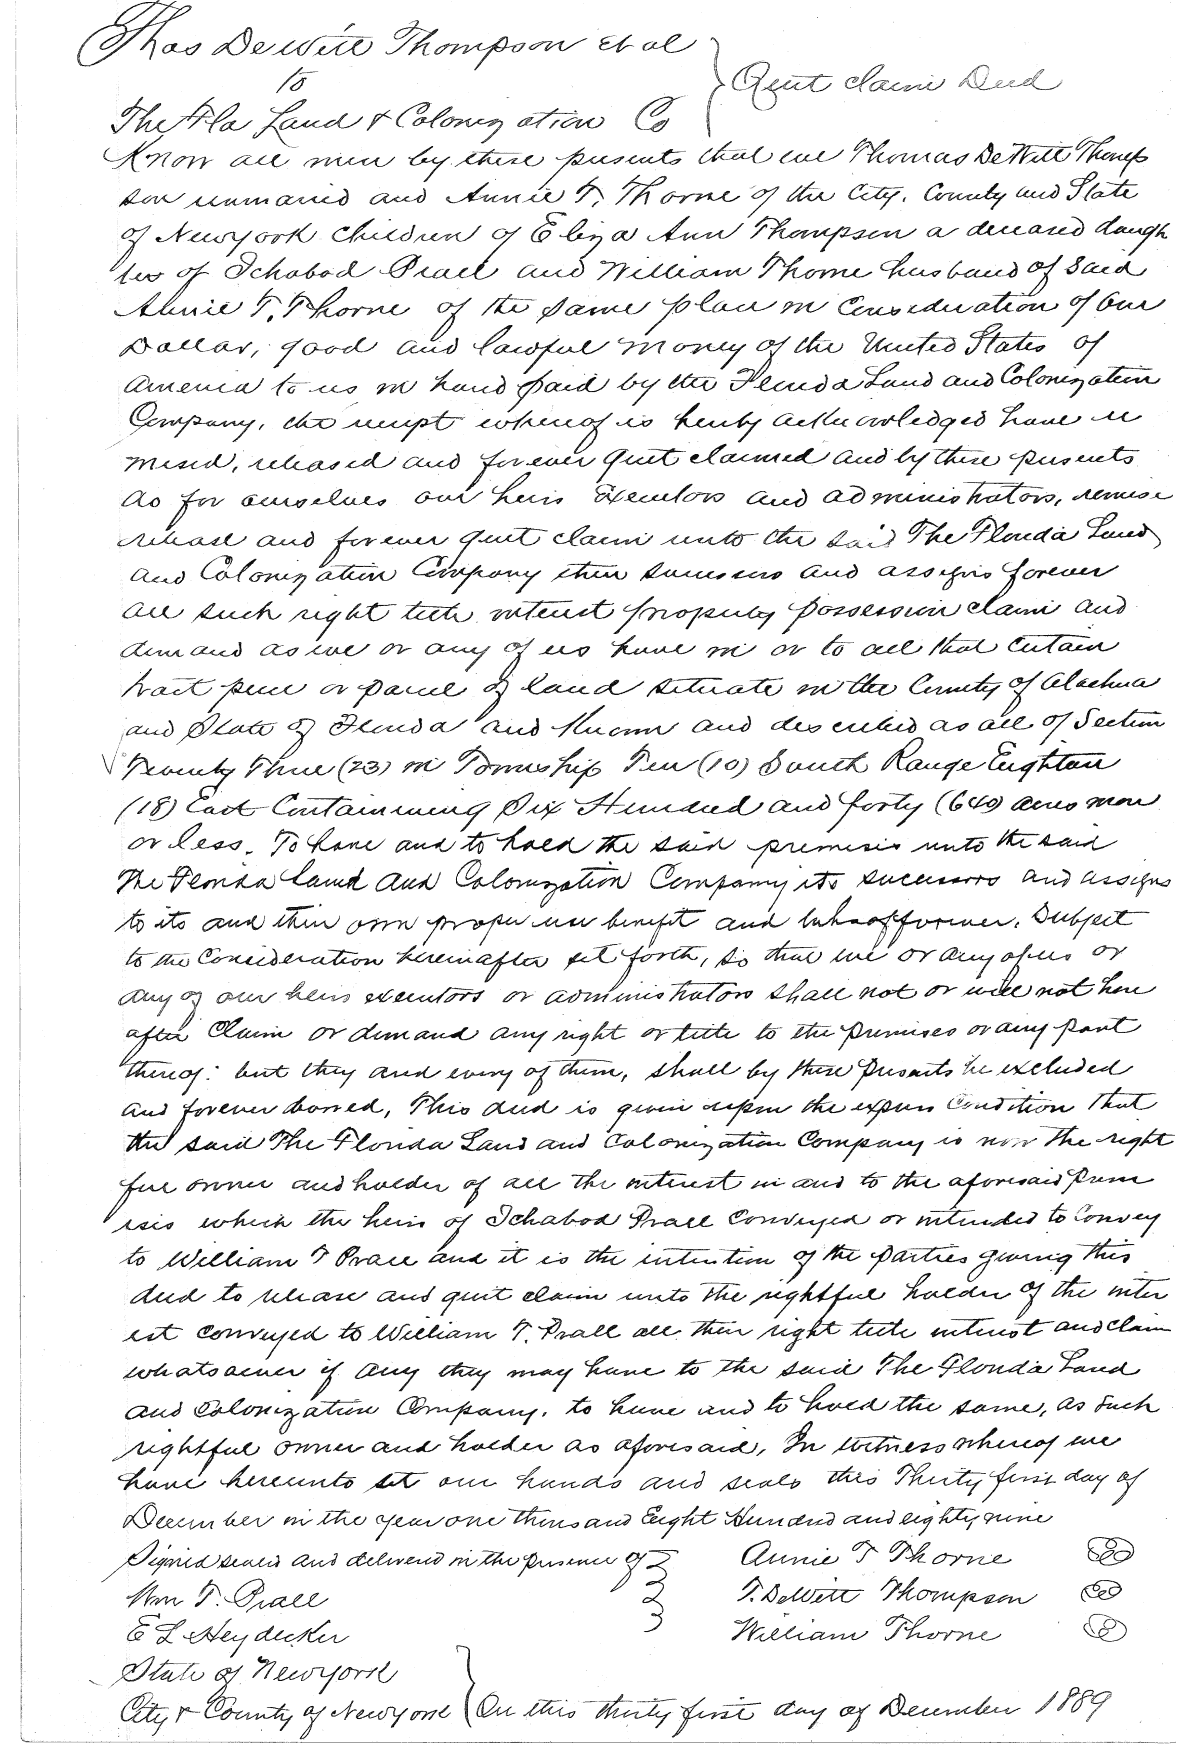 Thos DeWitt Thompson et al
to
Quit claim Deed
The Fla Land & Colonization Co
Know all men by these presents that we Thomas DeWitt Thomp
son unmaried and Annie T. Thorne of the City, County and State
of New york children of Eliza Ann Thompson a deceased daugh
ter of Ichabod Prall and William Thorne husband of said
Annie T. Thorne of the same place in Consideration of One
Dollar, good and lawful money of the United States of
America to us in hand paid by the Florida Land and Colonization
Company, the receipt whereof is hereby acknowledged have re
mised, released and forever quit claimed and by these presents
do for ourselves our heirs Executors and administrators, remise
release and forever quit claim unto the said The Florida Land
and Colonization Company their successors and assigns forever
all such right title interest property possession claim and
demand as we or any of us have in or to all that certain
tract piece or parcel of land situate in the County of Alachua
and State of Florida and Known and described as all of Section
Twenty Three (23) in Township Ten (10) South Range Eighteen
(18) East Containing Six Hundred and forty (640) acres more
or less. To have and to hold the said premises unto the said
The Florida Land and Colonization Company its successors and assigns
to its and their own proper use benefit and behoof forever. Subject
to the Consideration hereinafter set forth, so that we or any of us or
any of our heirs executors or administrators shall not or will not here
after Claim or demand any right or title to the premises or any part
thereof: but they and every of them, shall by these presents be excluded
and forever barred, This deed is given upon the express Condition that
the said The Florida Land and Colonization Company is now the right
ful owner and holder of all the interest in and to the aforesaid prem
ises which the heirs of Ichabod Prall Conveyed or intended to Convey
to William T Prall and it is the intention of the parties giving this
deed to release and quit claim unto the rightful holder of the inter
est conveyed to William T. Prall all their right title interest and claim
whatsoever if any they may have to the said The Florida Land
and Colonization Company, to have and to hold the same, as such
rightful owner and holder as aforesaid, In witness whereof we
have hereunto set our hands and seals this Thirty first day of
December in the year one thousand Eight Hundred and eighty nine
Signed sealed and delivered in the presence of Annie T Thorne
Wm T. Prall T. DeWitt Thompson
E L Heydecker William Thorne
State of New york
City & County of New york On this thirty first day of December 1889